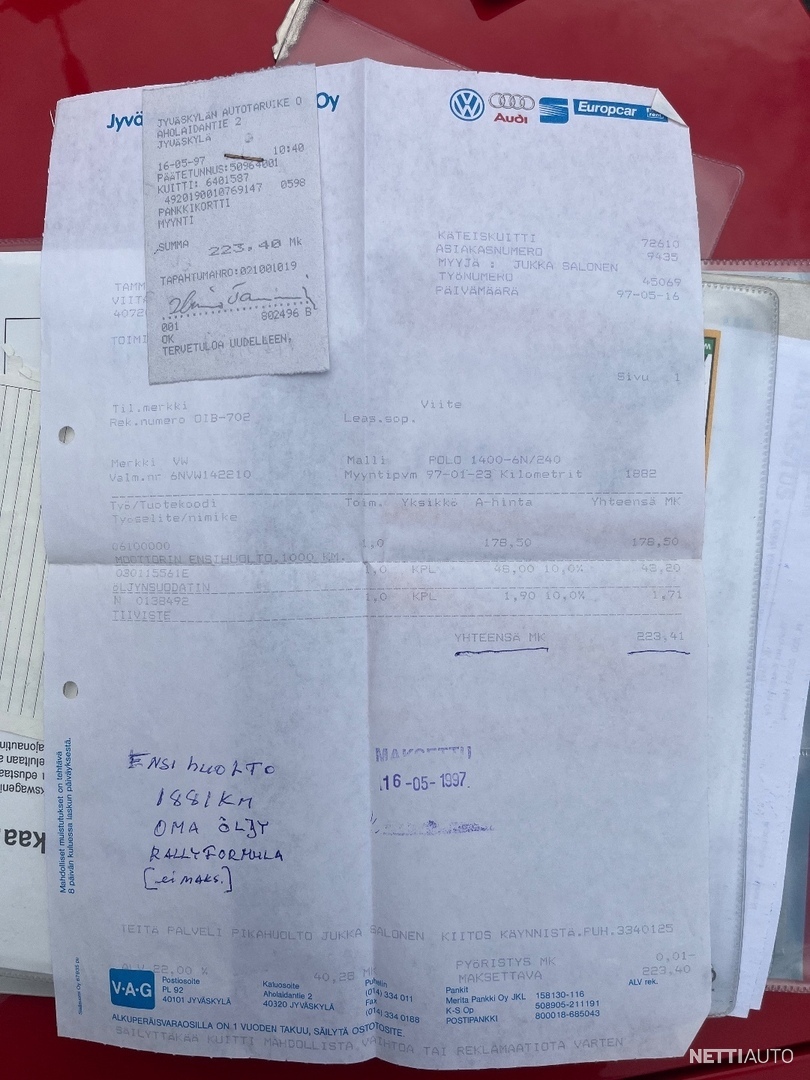 Jyvä
Oy
Audi
Europcar
JYVÄSKYLÄN AUTOTARVIKE O
AHOLAIDANTIE 2
JYVÄSKYLÄ
16-05-97 10:40
PÄÄTETUNNUS:50964001
KUITTI: 6401587
4920190010769147 0598
PANKKIKORTTI
MYYNTI
SUMMA 223.40 Mk
TAPAHTUMANRO:021001019
001 802496 B
OK
TERVETULOA UUDELLEEN.
KÄTEISKUITTI 72610
ASIAKASNUMERO 9435
MYYJÄ : JUKKA SALONEN
TYÖNUMERO 45069
PÄIVÄMÄÄRÄ 97-05-16
TAMM
VIITA
4072
TOIMI
Sivu 1
Til.merkki Viite
Rek.numero OIB-702 Leas.sop.
Merkki VW Malli POLO 1400-6N/240
Valm.nr 6NVW142210 Myyntipvm 97-01-23 Kilometrit 1882
Työ/Tuotekoodi Toim. Yksikkö A-hinta Yhteensä MK
Työselite/nimike
06100000 1,0 178,50 178,50
MOOTTORIN ENSIHUOLTO,1000 KM.
030115561E 1,0 KPL 48,00 10,0% 43,20
ÖLJYNSUODATIN
N 0138492 1,0 KPL 1,90 10,0% 1,71
TIIVISTE
YHTEENSÄ MK 223,41
ENSI HUOLTO
1881 KM
OMA ÖLJY
RALLY FORMULA
[ei MAKS.]
MAKSETTU
16-05-1997
Mahdolliset muistutukset on tehtävä
8 päivän kuluessa laskun päiväyksestä.
TEITÄ PALVELI PIKAHUOLTO JUKKA SALONEN KIITOS KÄYNNISTÄ.PUH.3340125
ALV 22,00 % 40,28 MK
PYÖRISTYS MK 0,01-
MAKSETTAVA 223.40
V·A·G
Postiosoite
PL 92
40101 JYVÄSKYLÄ
Katuosoite
Aholaidantie 2
40320 JYVÄSKYLÄ
Puhelin
(014) 334 011
Fax
(014) 334 0188
Pankit
Merita Pankki Oy JKL 158130-116
K-S Op 508905-211191
POSTIPANKKI 800018-685043
ALV rek.
ALKUPERÄISVARAOSILLA ON 1 VUODEN TAKUU, SÄILYTÄ OSTOTOSITE.
SÄILYTTÄKÄÄ KUITTI MAHDOLLISTA VAIHTOA TAI REKLAMAATIOTA VARTEN
NETTIAUTO